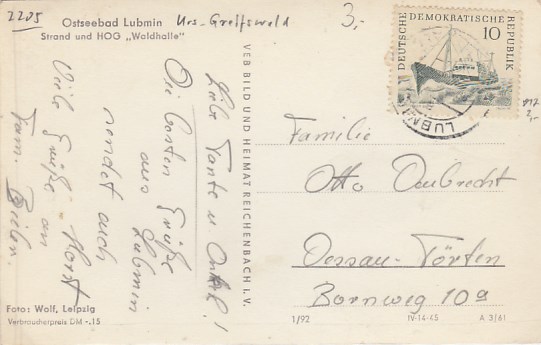 2205
Ostseebad Lubmin Krs. Greifswald
Strand und HOG „Waldhalle"
3,-
Liebe Tante u. Onkel!
Die besten Grüße
aus Lubmin
sendet euch
Horst
Viele Grüße an
Fam. Bielen.
VEB BILD UND HEIMAT REICHENBACH I. V.
DEUTSCHE DEMOKRATISCHE REPUBLIK
10
LUBM
Familie
Otto
Dessau-Törten
Bornweg 10a
Foto: Wolf, Leipzig
Verbraucherpreis DM -.15
1/92 IV-14-45 A 3/61